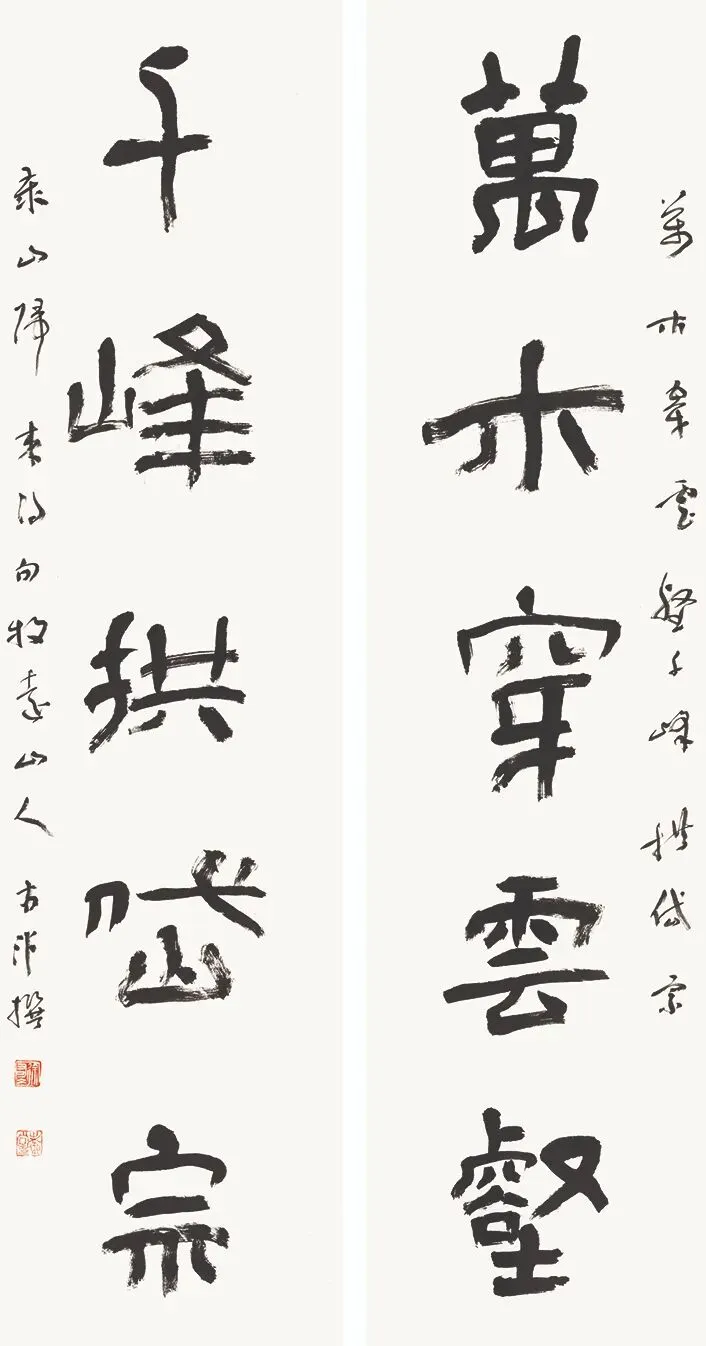 萬木穿雲壑千峰拱岱宗
萬木穿雲壑
千峰拱岱宗
泰山歸來得句牧遠山人撰